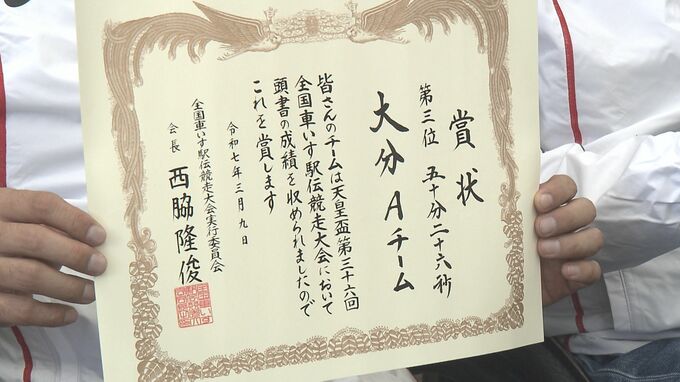 賞状
第三位 五十分二十六秒
大分Aチーム
皆さんのチームは天皇盃第三十六回
全国車いす駅伝競走大会において
頭書の成績を収められましたので
これを賞します
令和七年三月九日
全国車いす駅伝競走大会実行委員会
会長 西脇隆俊